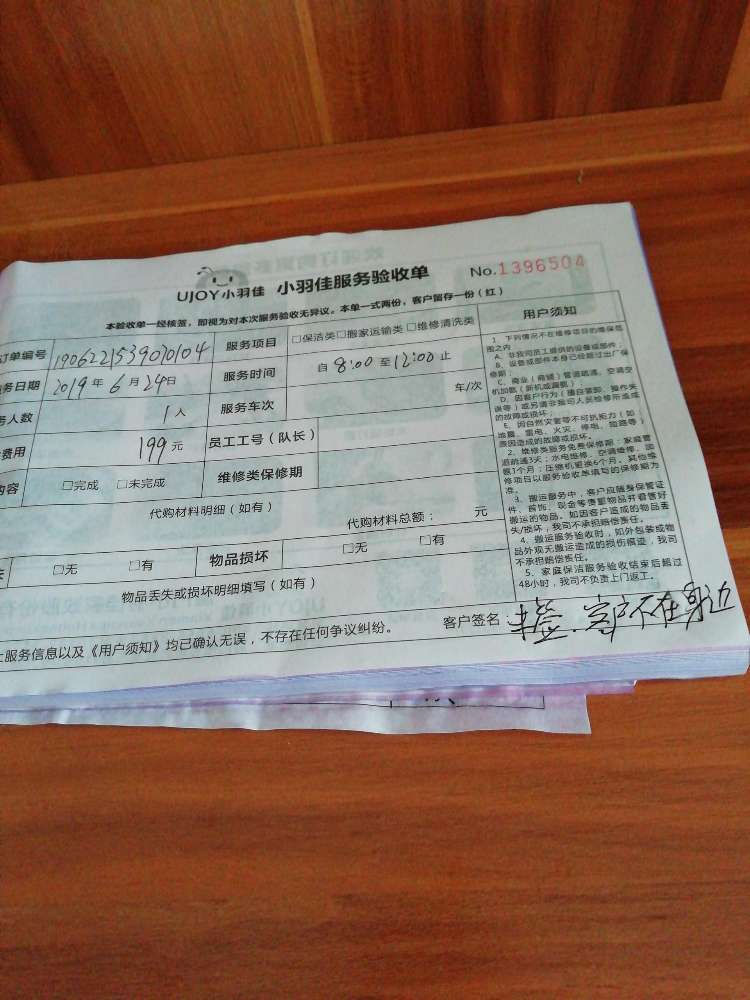 UJOY小羽佳 小羽佳服务验收单 No.1396504
本验收单一经核签，即视为对本次服务验收无异议。本单一式两份，客户留存一份（红）
订单编号 1906221539070104 服务项目 □保洁类□搬家运输类□维修清洗类
务日期 2019年6月24日 服务时间 自8:00至12:00止
务人数 1人 服务车次 车/次
费用 199元 员工工号（队长）
内容 □完成 □未完成 维修类保修期
代购材料明细（如有）
代购材料总额： 元
□无 □有 物品损坏 □无 □有
物品丢失或损坏明细填写（如有）
上服务信息以及《用户须知》均已确认无误，不存在任何争议纠纷。 客户签名：未签，客户不在身边
用户须知
1、下列情况不在维修项目的维保范
围之内
A、非我司员工提供的设备或部件；
B、设备或部件本身已经超过出厂保
修期；
C、商业（商铺）管道疏通、空调空
机加氨（新机或漏氨）
D、因客户行为（擅自装卸、操作失
误等）或另请非我司人员检修所造成
的故障或损坏；
E、因自然灾害等不可抗拒力（如
地震、雷电、火灾、停电、短路等）
原因造成的故障或损坏。
2、维修类服务免费保修期：家庭管
道疏通3天；水电维修、空调维修、回
氨1个月；压缩机更换6个月，其他维
修项目以服务验收单填写的保修期为
准。
3、搬运服务中，客户应随身保管证
件、首饰、现金等贵重物品并看管好
搬运的物品。如因客户造成的物品丢
失/损坏，我司不承担赔偿责任。
4、搬运服务验收时，如外包装或物
品外观无搬运造成的损伤痕迹，我司
不承担赔偿责任。
5、家庭保洁服务验收结束后超过
48小时，我司不负责上门返工。